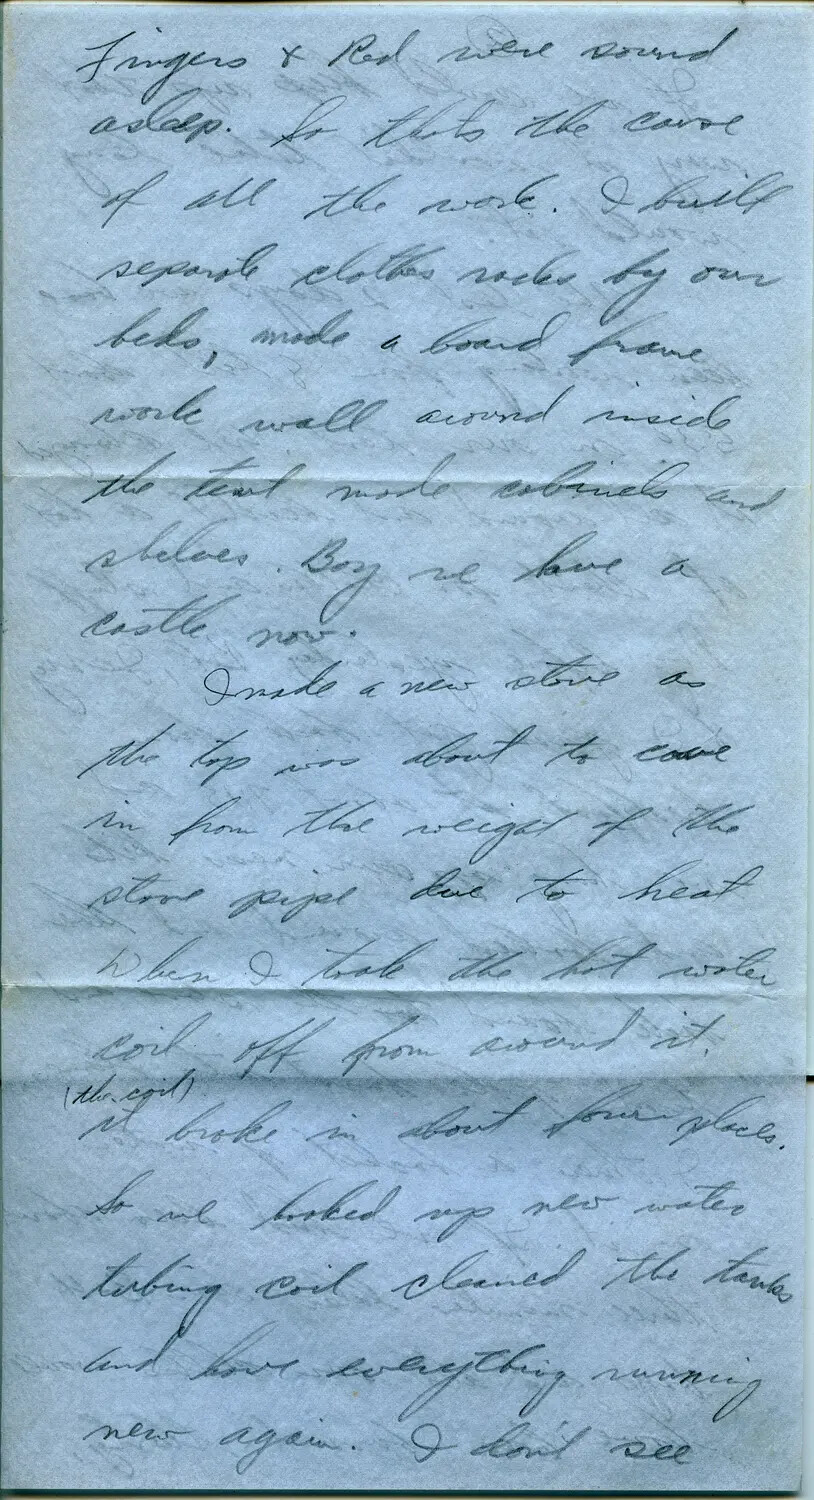 Fingers & Red were sound
asleep. So thats the cause
of all the work. I built
separate clothes racks by our
beds, made a board frame
work wall around inside
the tent made cabinets and
shelves. Boy we have a
castle now.
I made a new stove as
the top was about to cave
in from the weight of the
stove pipe due to heat
When I took the hot water
coil off from around it.
(the coil)
it broke in about four places.
So we hooked up new water
tubing coil cleaned the tanks
and have everything running
new again. I don't see